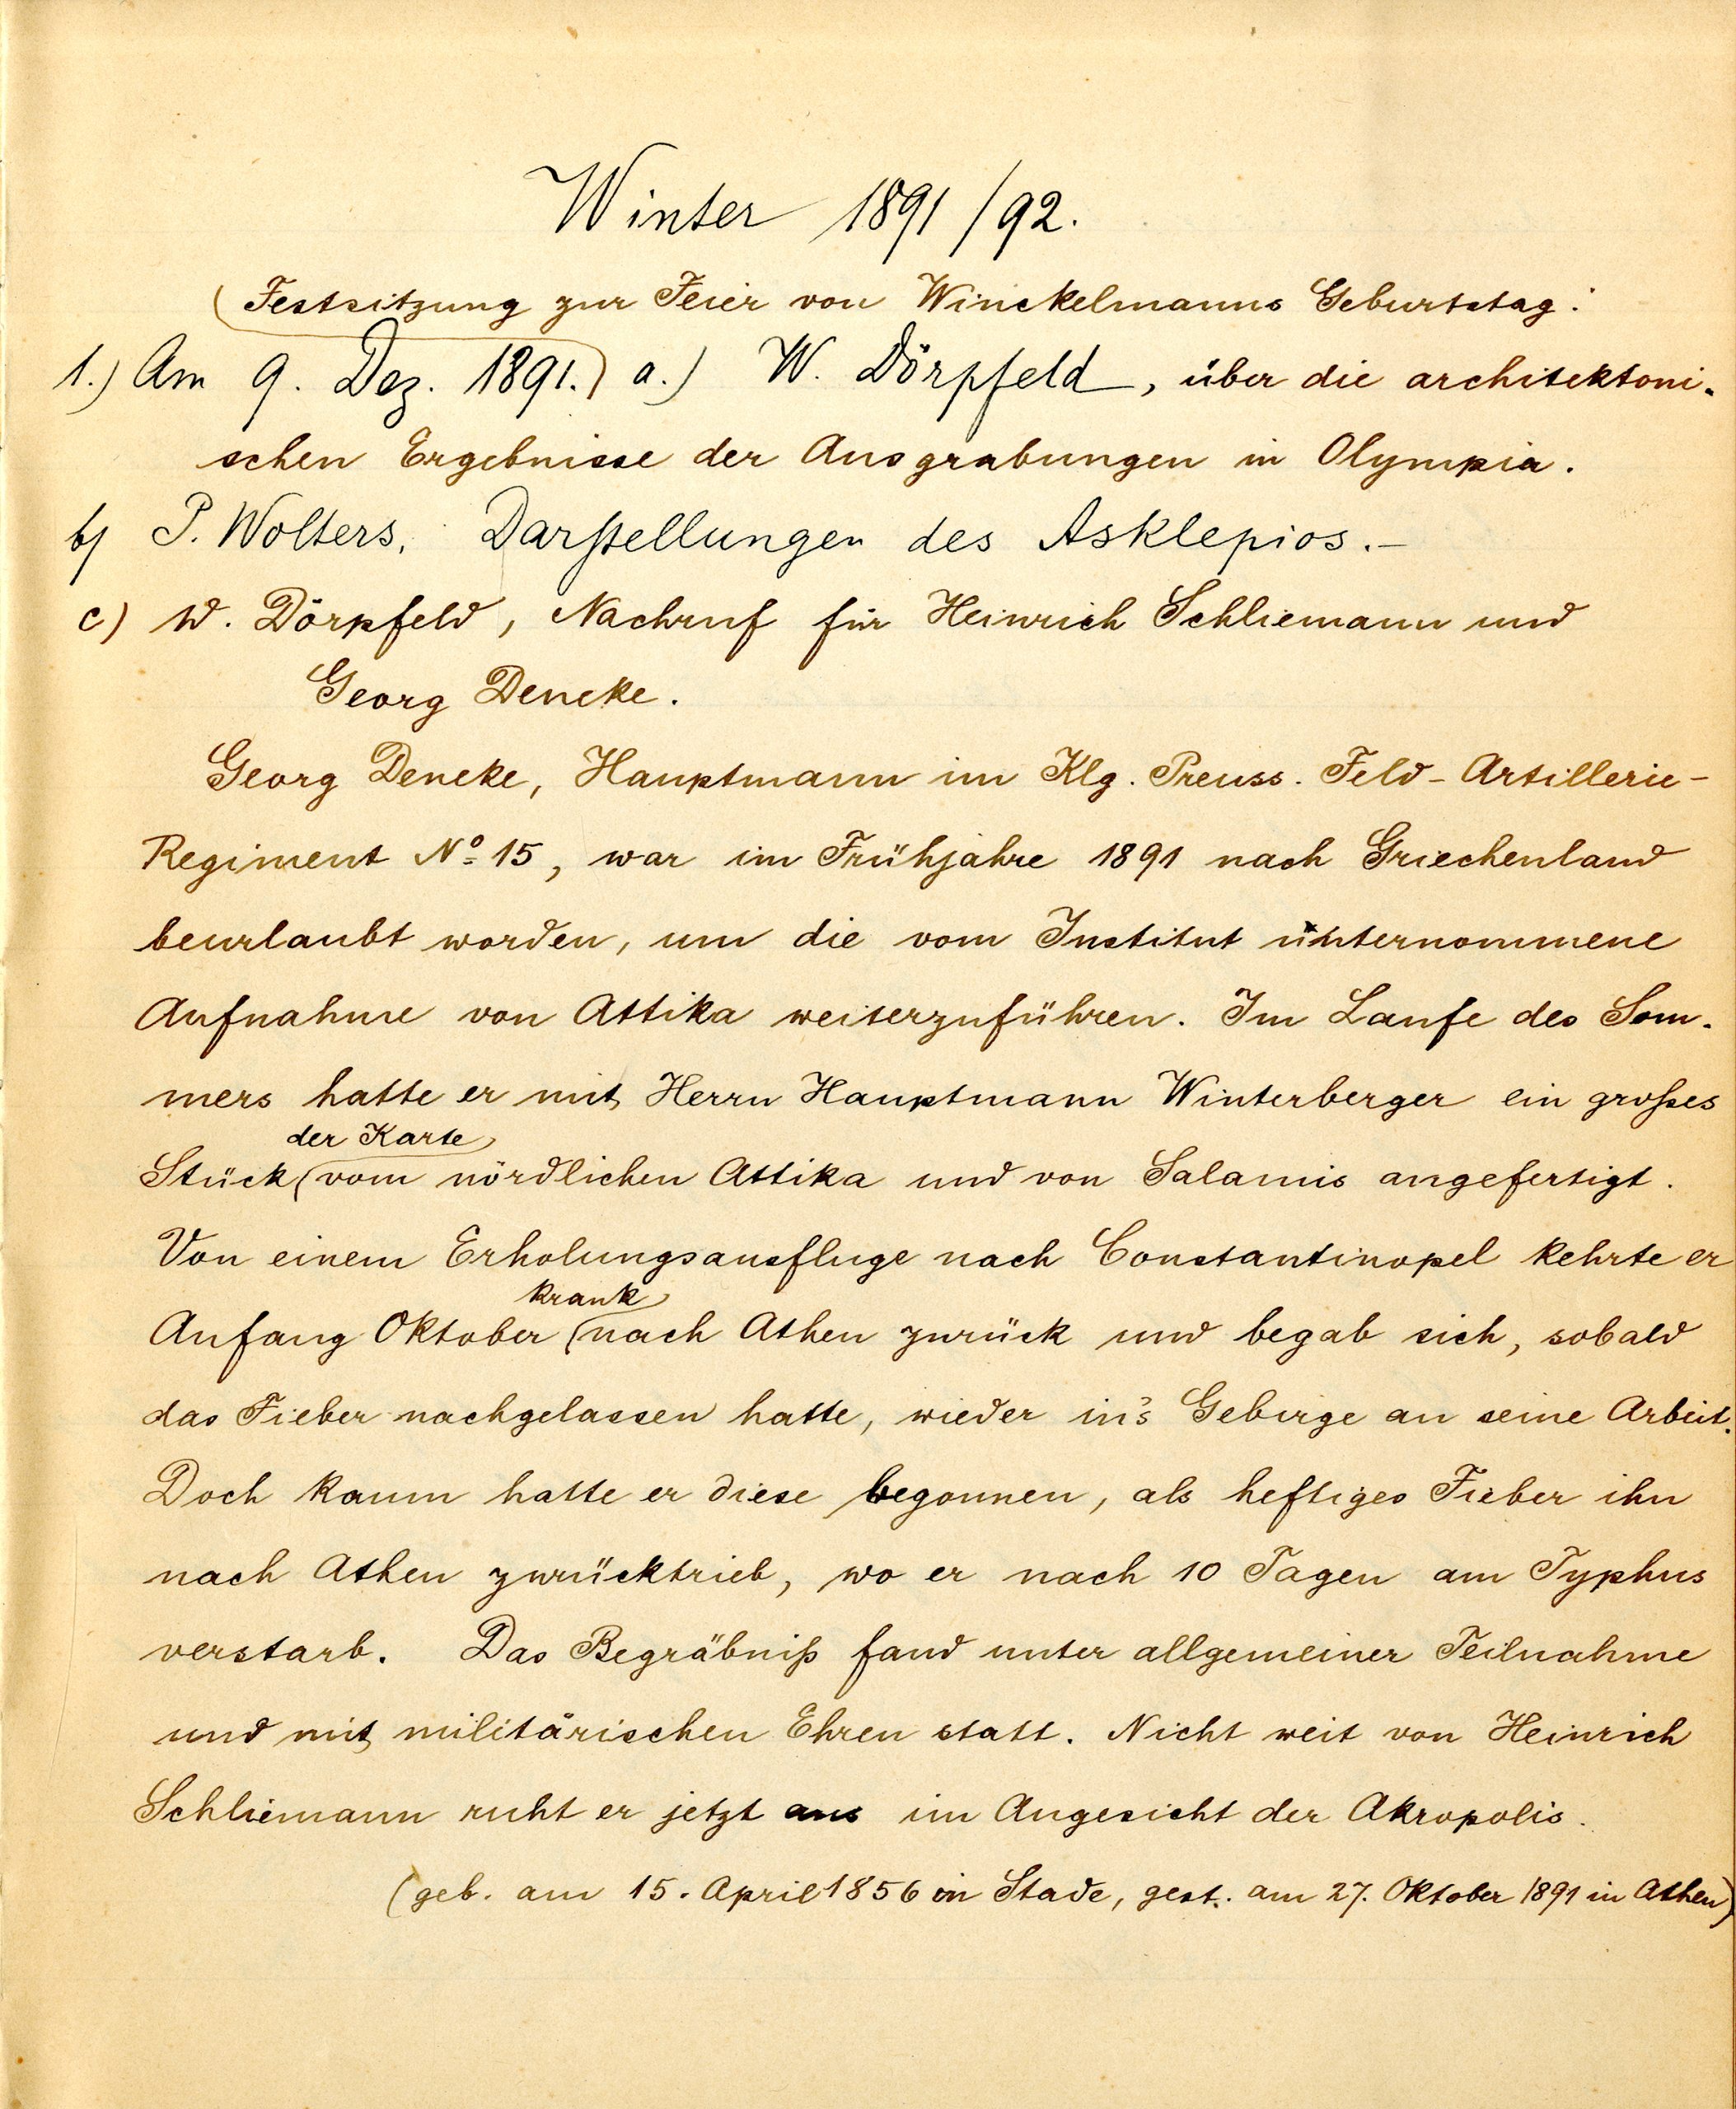 Winter 1891/92.
(Festsitzung zur Feier von Winckelmanns Geburtstag:
1.) Am 9. Dez. 1891.) a.) W. Dörpfeld, über die architektoni-
schen Ergebnisse der Ausgrabungen in Olympia.
b) P. Wolters, Darstellungen des Asklepios.–
c) W. Dörpfeld, Nachruf für Heinrich Schliemann und
Georg Deneke.
Georg Deneke, Hauptmann im Klg. Preuss. Feld-Artillerie-
Regiment No 15, war im Frühjahre 1891 nach Griechenland
beurlaubt worden, um die vom Institut unternommene
Aufnahme von Attika weiterzuführen. Im Laufe des Som-
mers hatte er mit Herrn Hauptmann Winterberger ein großes
der Karte
Stück (vom nördlichen Attika und von Salamis angefertigt.
Von einem Erholungsausfluge nach Constantinopel kehrte er
krank
Anfang Oktober (nach Athen zurück und begab sich, sobald
das Fieber nachgelassen hatte, wieder in's Gebirge an seine Arbeit.
Doch kaum hatte er diese begonnen, als heftiges Fieber ihn
nach Athen zurücktrieb, wo er nach 10 Tagen am Typhus
verstarb. Das Begräbniß fand unter allgemeiner Teilnahme
und mit militärischen Ehren statt. Nicht weit von Heinrich
Schliemann ruht er jetzt aus im Angesicht der Akropolis.
(geb. am 15. April 1856 in Stade, gest. am 27. Oktober 1891 in Athen)